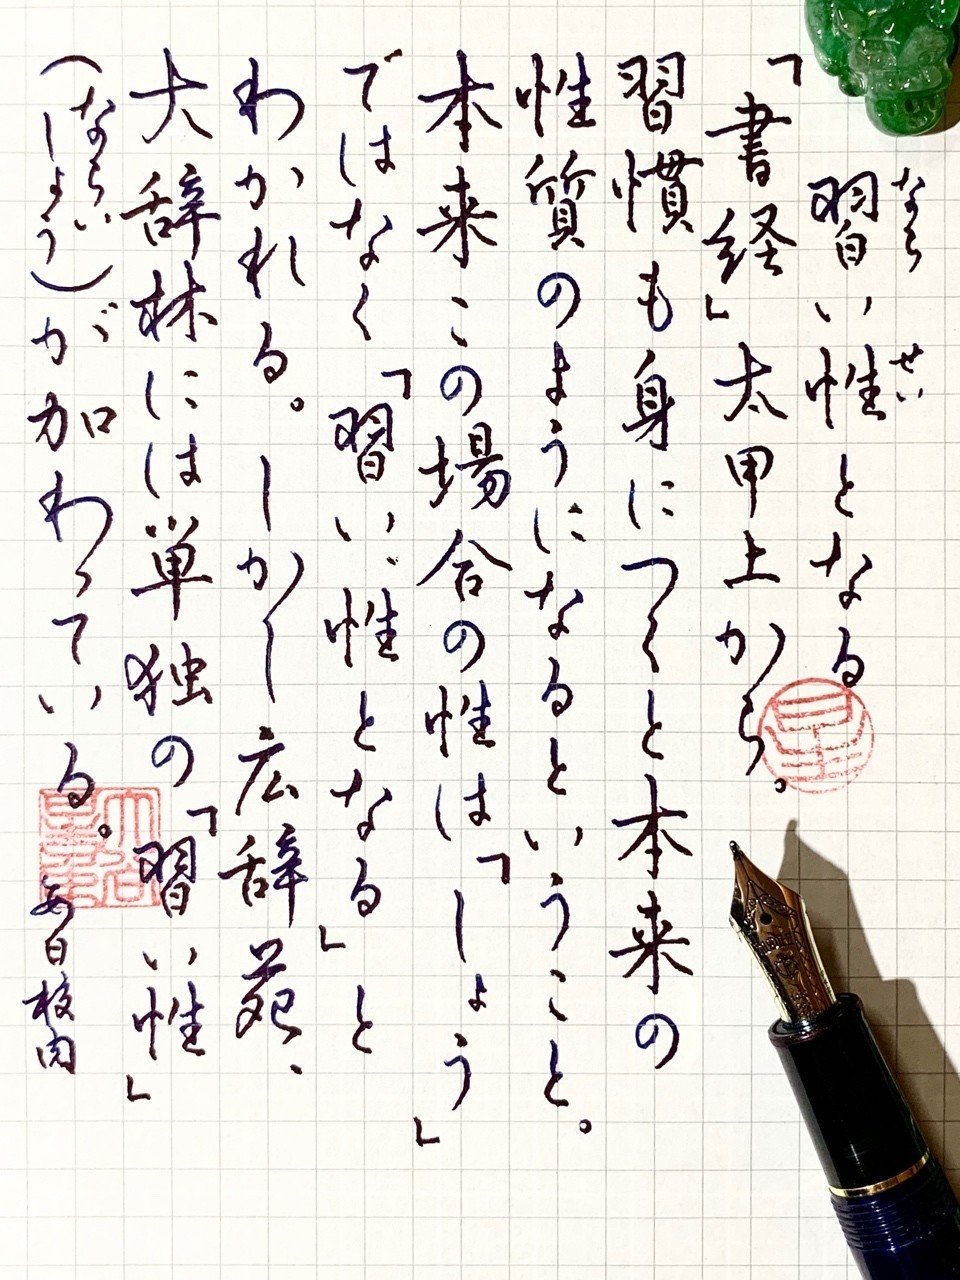 なら せい
習い性となる
「書経」太甲上から。
習慣も身につくと本来の
性質のようになるということ。
本来この場合の性は「しょう」
ではなく「習い、性となる」と
わかれる。しかし広辞苑、
大辞林には単独の「習い性」
(ならいしょう)が加わっている。